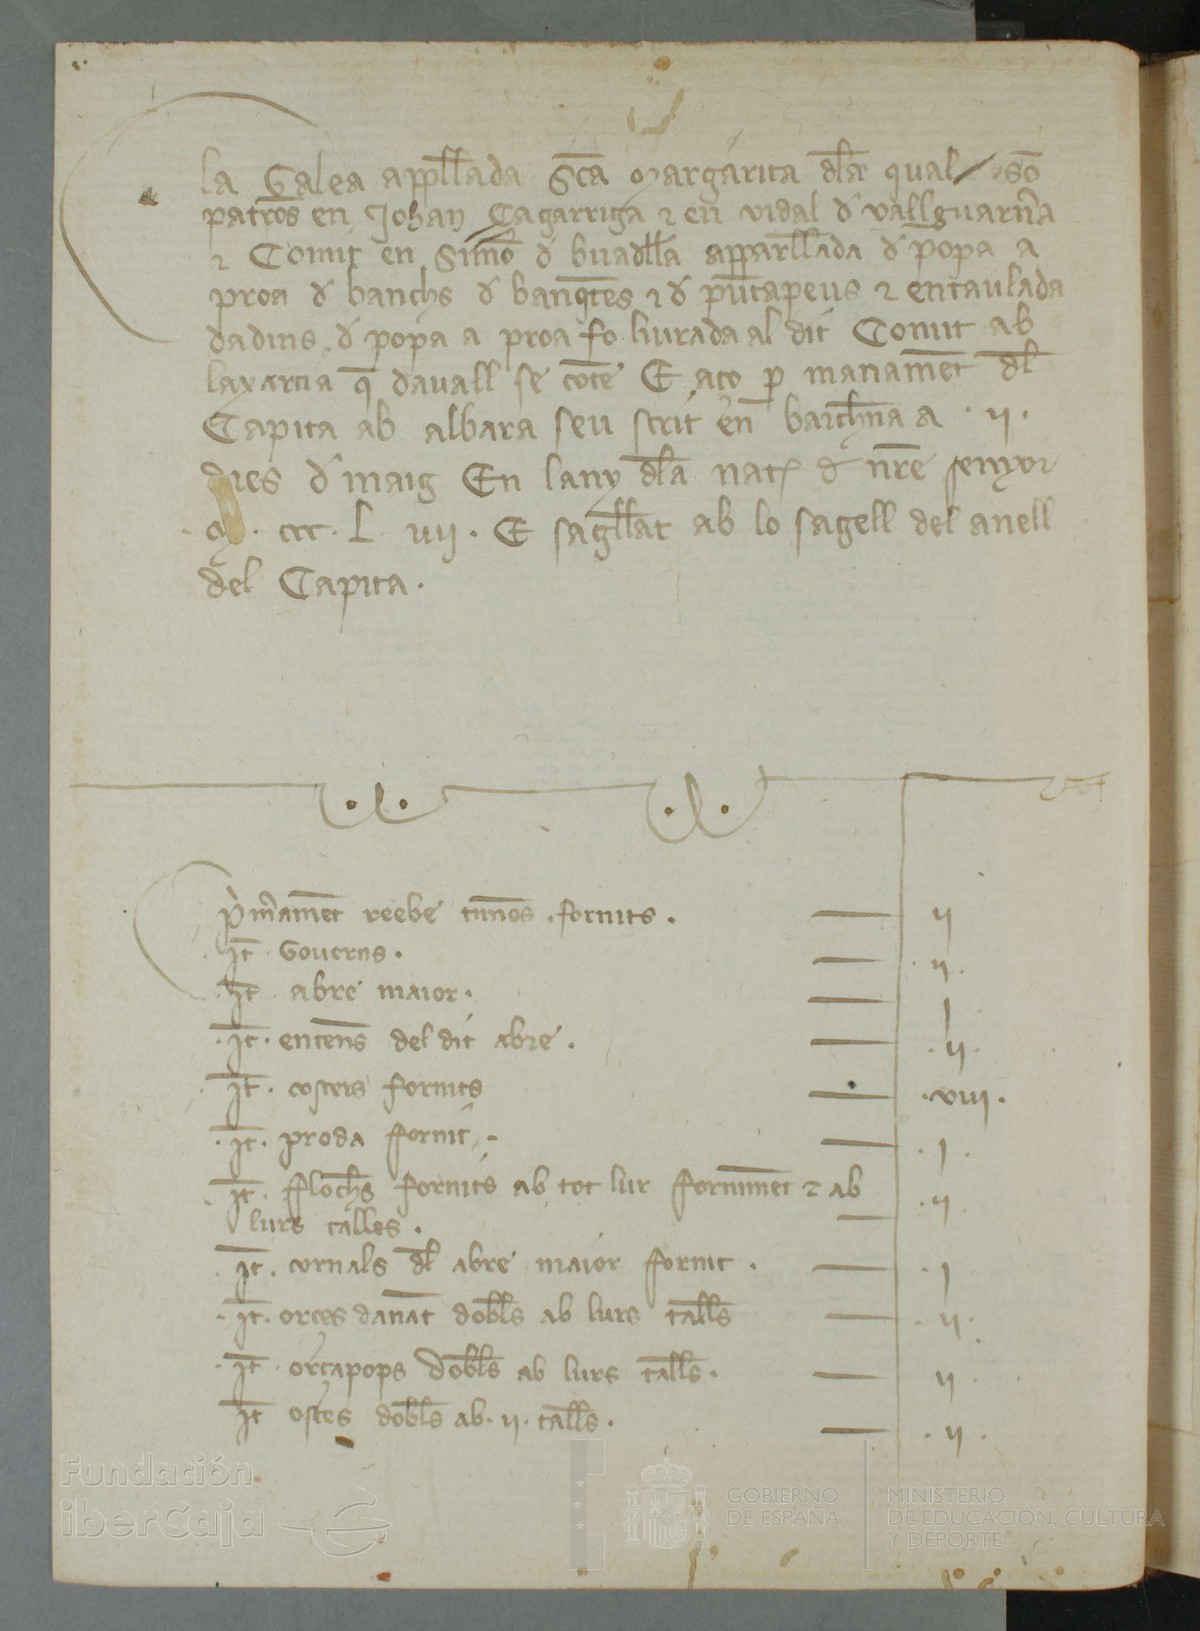 la Galea appllada Sca Margarita dla qual son
patros en Johan Çagarriga ⁊ en vidal d vallguarna
⁊ Comit en Simo d buadlla apparllada d popa a
proa d banchs d banqtes ⁊ d puntapeus ⁊ entaulada
dadins d popa a proa fo liurada al dit Comit ab
laxarcia q davall se conte E aço p manament dl
Capita ab albara seu scrit en barchna a · ii ·
dies d maig En lany dla nat d nre senyor
M · ccc · L · vii · E sagllat ab lo sagell del anell
del Capita ·
Primament reebe timons · fornits · ii
It · Governs · ii ·
It · abre maior · i
It · entens del dit abre · ii ·
It · costers fornits · viii ·
It · proda fornit · i ·
It · fflochs fornits ab tot lur forniment ⁊ ab · ii ·
lurs talles ·
It · cornals dl abre maior fornit · i
It · orces danant dobls ab lurs talls · ii ·
It · orçapops dobls ab lurs talls · ii ·
It ostes dobls ab · ii · talls · ii ·
Fundación
iberCaja
GOBIERNO
DE ESPAÑA
MINISTERIO
DE EDUCACIÓN, CULTURA
Y DEPORTE